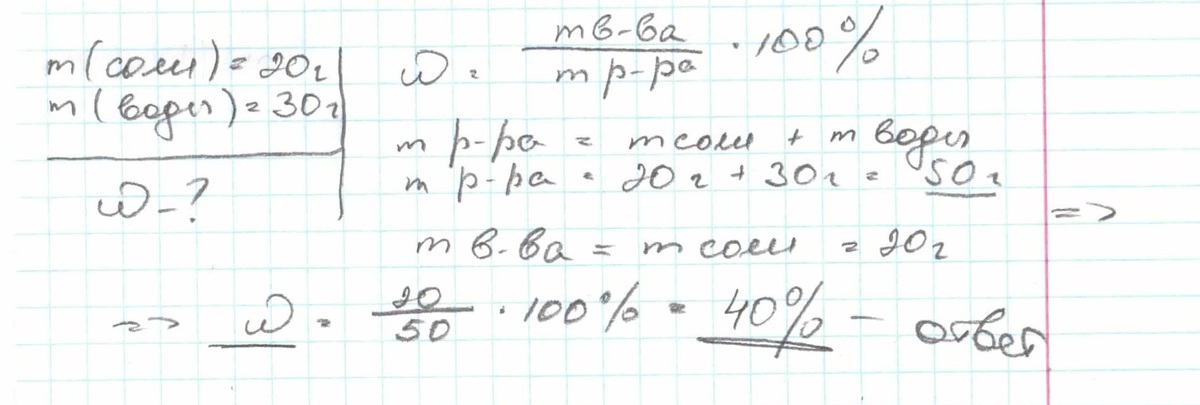 m(соли) = 20г
m(воды) = 30г
ω - ?
ω = m в-ва / m р-ра · 100%
m р-ра = m соли + m воды
m р-ра = 20г + 30г = 50г
=>
m в-ва = m соли = 20г
=> ω = 20/50 · 100% = 40% - ответ